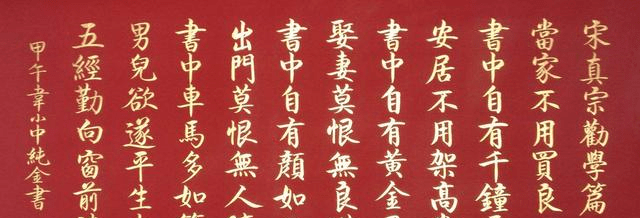 宋真宗勸學篇
當家不用買良
書中自有千鐘
安居不用架高
書中自有黃金
娶妻莫恨無良
書中自有顏如
出門莫恨無人
書中車馬多如
男兒欲遂平生
五經勤向窗前
甲午韋小中純金書